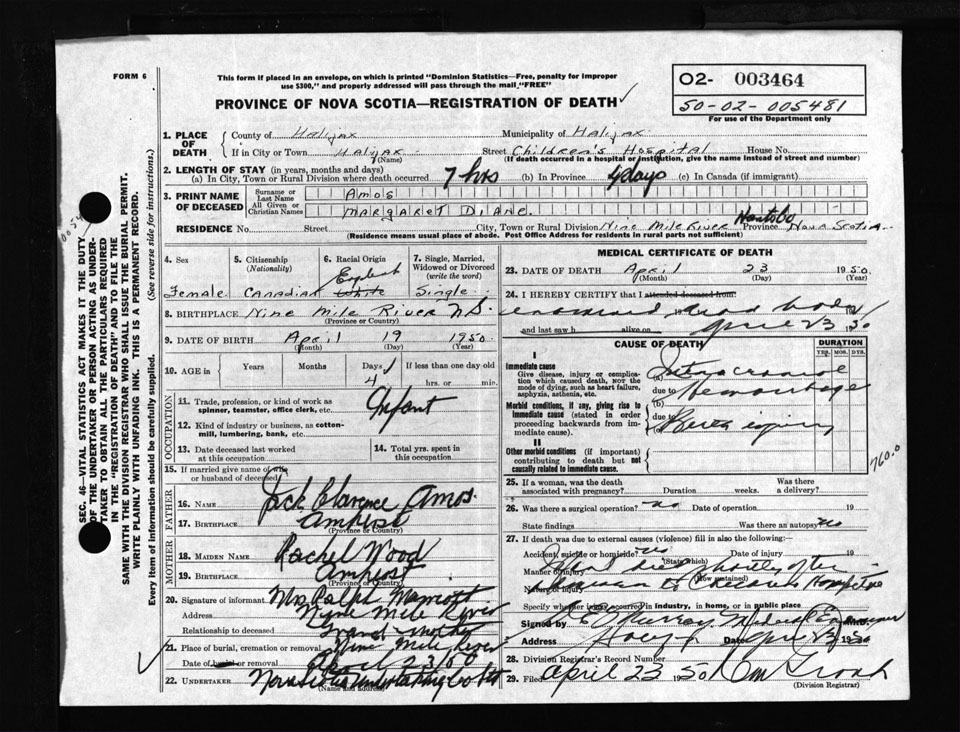 FORM 6
This form if placed in an envelope, on which is printed "Dominion Statistics—Free, penalty for improper
use $300," and properly addressed will pass through the mail "FREE"
PROVINCE OF NOVA SCOTIA—REGISTRATION OF DEATH
02- 003464
50-02-005481
For use of the Department only
1. PLACE OF DEATH
County of Halifax Municipality of Halifax
If in City or Town Halifax Street Children's Hospital House No.
(Name) (If death occurred in a hospital or institution, give the name instead of street and number)
2. LENGTH OF STAY (in years, months and days)
(a) In City, Town or Rural Division where death occurred 7 hrs (b) In Province 4 days (c) In Canada (if immigrant)
3. PRINT NAME OF DECEASED
Surname or Last Name Amos
All Given or Christian Names MARGARET DIANE.
RESIDENCE No. Street City, Town or Rural Division Nine Mile River Hants Co Province Nova Scotia
(Residence means usual place of abode. Post Office Address for residents in rural parts not sufficient)
4. Sex Female
5. Citizenship (Nationality) Canadian
6. Racial Origin English White
7. Single, Married, Widowed or Divorced (write the word) Single
8. BIRTHPLACE Nine Mile River N.S.
(Province or Country)
9. DATE OF BIRTH April 19 1950
(Month) (Day) (Year)
10. AGE in Years Months Days 4 If less than one day old
hrs. or min.
OCCUPATION
11. Trade, profession, or kind of work as spinner, teamster, office clerk, etc. Infant
12. Kind of industry or business, as cotton-mill, lumbering, bank, etc.
13. Date deceased last worked at this occupation
14. Total yrs. spent in this occupation
15. If married give name of wife or husband of deceased
FATHER
16. Name Jack Clarence Amos
17. Birthplace Amherst
(Province or Country)
MOTHER
18. Maiden Name Rachel Wood
19. Birthplace Amherst
(Province or Country)
20. Signature of informant Mrs Ralph
Address Nine Mile River
Relationship to deceased Grand mother
21. Place of burial, cremation or removal Nine Mile River
Date of burial or removal April 23/50
22. UNDERTAKER Nova Scotia Undertaking Co Ltd
(Name and address)
MEDICAL CERTIFICATE OF DEATH
23. DATE OF DEATH April 23 1950
(Month) (Day) (Year)
24. I HEREBY CERTIFY that I attended deceased from:
examined dead body
and last saw h alive on April 23 1950
CAUSE OF DEATH
DURATION
YRS. MOS. DYS.
I
Immediate cause
Give disease, injury or complication which caused death, NOT the mode of dying, such as heart failure, asphyxia, asthenia, etc.
(a) Intra cranial
due to Hemorrhage
(b)
Morbid conditions, if any, giving rise to immediate cause (stated in order proceeding backwards from immediate cause).
due to Birth injury
II
Other morbid conditions (if important) contributing to death but not causally related to immediate cause.
760.0
25. If a woman, was the death associated with pregnancy? Duration weeks Was there a delivery?
26. Was there a surgical operation? no Date of operation 19
State findings Was there an autopsy? no
27. If death was due to external causes (violence) fill in also the following:
Accident, suicide or homicide? no Date of injury 19
(State which)
Manner of injury died shortly after
(How sustained)
Nature of injury to Children's Hospital
Specify whether injury occurred in industry, in home, or in public place
Signed by Murray, Medical Examiner
Address Date April 23 1950
28. Division Registrar's Record Number
29. Filed April 23 1950
(Division Registrar)
SEC. 46—VITAL STATISTICS ACT MAKES IT THE DUTY
OF THE UNDERTAKER OR PERSON ACTING AS UNDER-
TAKER TO OBTAIN ALL THE PARTICULARS REQUIRED
IN THE "REGISTRATION OF DEATH" AND TO FILE THE
SAME WITH THE DIVISION REGISTRAR WHO SHALL ISSUE THE BURIAL PERMIT.
WRITE PLAINLY WITH UNFADING INK. THIS IS A PERMANENT RECORD.
Every item of information should be carefully supplied. (See reverse side for instructions.)